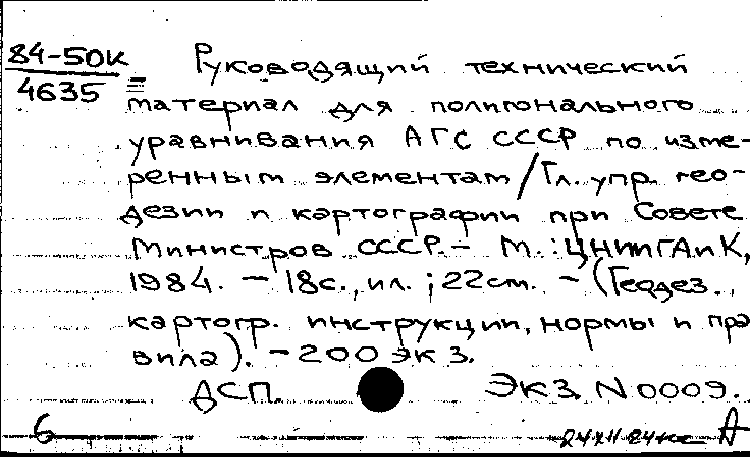 84-50к
4635
Руководящий технический
материал для полигонального
уравнивания АГС СССР по изме-
ренным элементам / Гл. упр. гео-
дезии и картографии при Совете
Министров СССР. - М. : ЦНИИГАиК,
1984. - 18с., ил. ; 22см. - (Геодез.,
картогр. инструкции, нормы и пра
вила). - 200 экз.
ДСП Экз. N 0009.
6 24 XII 84 А